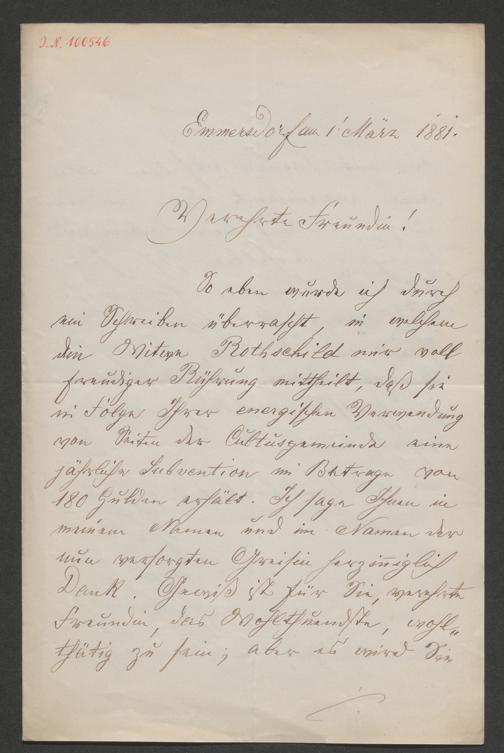 J.N. 100546
Emmersdorf am 1. März 1881.
Verehrte Freundin!
So eben wurde ich durch
ein Schreiben überrascht, in welchem
die Witwe Rothschild mir voll
freudiger Rührung mittheilt, daß sie
in Folge Ihrer energischen Verwendung
von Seiten der Cultusgemeinde eine
jährliche Subvention im Betrage von
180 Gulden erhält. Ich sage Ihnen in
meinem Namen und im Namen der
nun versorgten Greisin herzinniglich
Dank. Gewiß ist für Sie, verehrte
Freundin, das Wohlthuendste, wohl-
thätig zu sein; aber es wird Sie